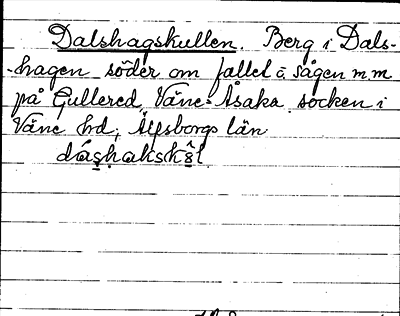 Dalshagskullen. Berg i Dals-
-hagen söder om fallet o. sågen m m
på Gullered, Väne-Åsaka socken i
Väne hd, Älfsborgs län